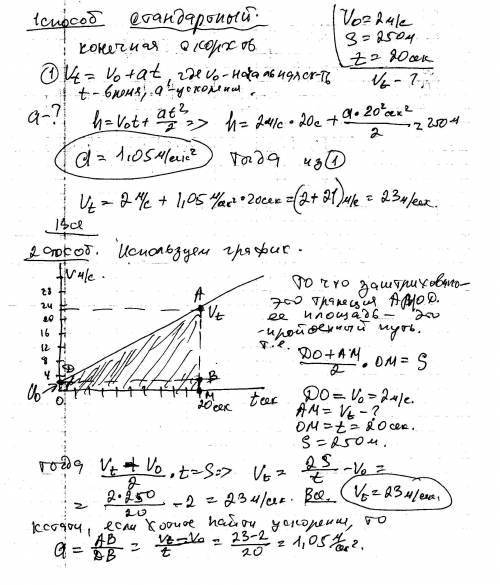 1 способ стандартный.
V₀ = 2 м/с
S = 250 м
t = 20 сек
Vt - ?
конечная скорость
① Vt = V₀ + at, где V₀ - начальная ск-ть
t - время, a - ускорение.
a - ?
h = V₀t + at²/2 => h = 2 м/с · 20с + a·20²сек²/2 = 250 м
a = 1,05 м/сек² тогда из ①
Vt = 2 м/с + 1,05 м/сек² · 20сек = (2 + 21) м/с = 23 м/сек.
Все
2 способ. Используем график.
V м/с.
28
24
20
16
12
8
4
V₀
D
0
A
Vt
B
M
20сек
t сек
То что заштриховано-
это трапеция AMOD.
ее площадь - это
пройденный путь.
т.е.
DO + AM / 2 · OM = S
DO = V₀ = 2м/с.
AM = Vt - ?
OM = t = 20сек.
S = 250 м.
тогда Vt + V₀ / 2 · t = S => Vt = 2S/t - V₀ =
= 2·250/20 - 2 = 23 м/сек. Все. Vt = 23 м/сек.
кстати, если хотите найти ускорение, то
a = AB/DB = Vt - V₀/t = 23-2/20 = 1,05 м/сек².